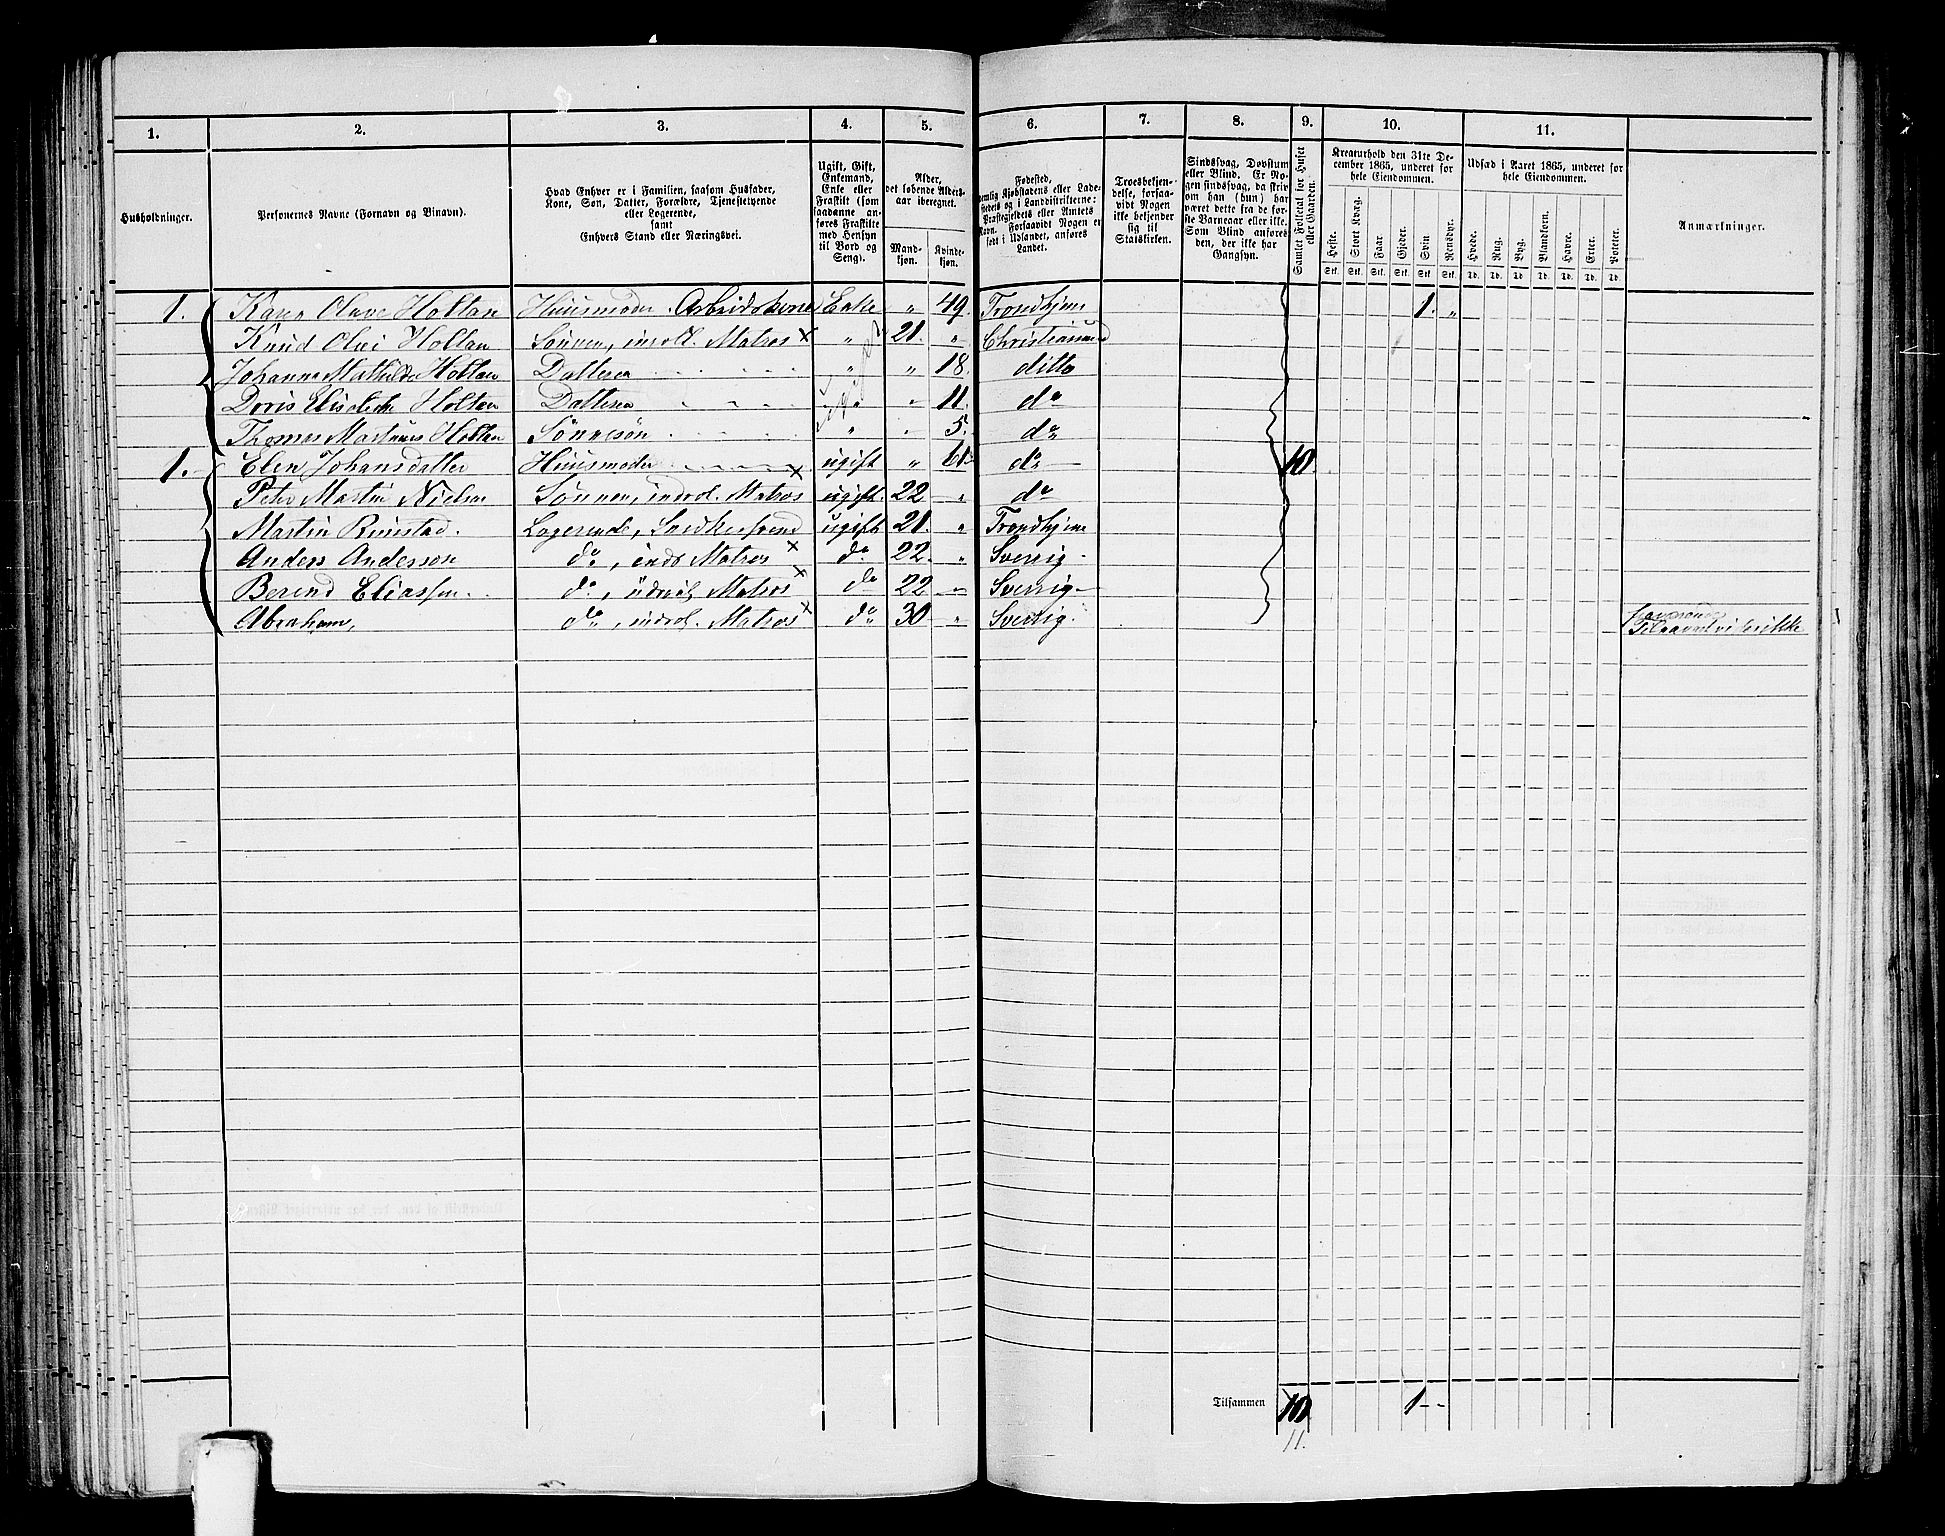 1. 2. 3. 4. 5. 6. 7. 8. 9. 10. 11.
Husholdninger.
Personernes Navne (Fornavn og Binavn).
Hvad Enhver er i Familien, saasom Husfader,
Kone, Søn, Datter, Forældre, Tjenestetyende
eller Logerende,
samt
Enhvers Stand eller Næringsvei.
Ugift, Gift,
Enkemand,
Enke eller
Fraskilt (som
saadanne an-
føres Fraskilte
med Hensyn
til Bord og
Seng).
Alder,
det løbende Alders-
aar iberegnet.
Mand-
kjøn.
Kvinde-
kjøn.
Fødested,
nemlig Kjøbstadens eller Lade-
stedets og i Landdistrikterne:
Præstegjeldets eller Amtets
Navn. Forsaavidt Nogen er
født i Udlandet, anføres
Landet.
Troesbekjen-
delse, forsaa-
vidt Nogen
ikke bekjender
sig til
Statskirken.
Sindssvag, Døvstum
eller Blind. Er No-
gen sindssvag, da skriv
om han (hun) har
været dette fra de før-
ste Barneaar eller ikke.
Som Blind anføres
den, der ikke har
Gangsyn.
Samlet Folketal for Huset
eller Gaarden.
Kreaturhold den 31te De-
cember 1865, underet for
hele Eiendommen.
Heste. Stort Kvæg. Faar Gjeder. Svin. Rensdyr.
Stk. Stk. Stk. Stk. Stk. Stk.
Udsæd i Aaret 1865, underet for
hele Eiendommen.
Hvede. Rug. Byg. Blandkorn. Havre. Erter. Poteter.
Td. Td. Td. Td. Td. Td. Td.
Anmærkninger.
1. Karen Olave Holtan Huusmoder Arbeidskone Enke „ 49. Trondhjem 1. „
Knud Olai Holtan Sønnen, inroll. Matros × „ 21. „ Christiansund
Johanna Mathilde Holtan Datteren „ „ 18. ditto
Doris Elisabeth Holtan Datteren „ „ 11. do
Thomas Martinus Holtan Sønnesøn „ „ 5. do
1. Elen Johansdatter Huusmoder ugift „ 61 do 10
Peter Martin Nielsen Sønnen, indrol. Matros × ugift. 22 „ do
Martin Rimstad. Logerende, ugift 21. „ Trondhjem
Anders Anderson do, Matros × do 22. „ Sverrig
Berend Eliassen. do, Matros × do 22 „ Sverrig
Abraham, do, indrol. Matros × do 30 „ Sverrig.
Tilsammen 10 1 --
11.